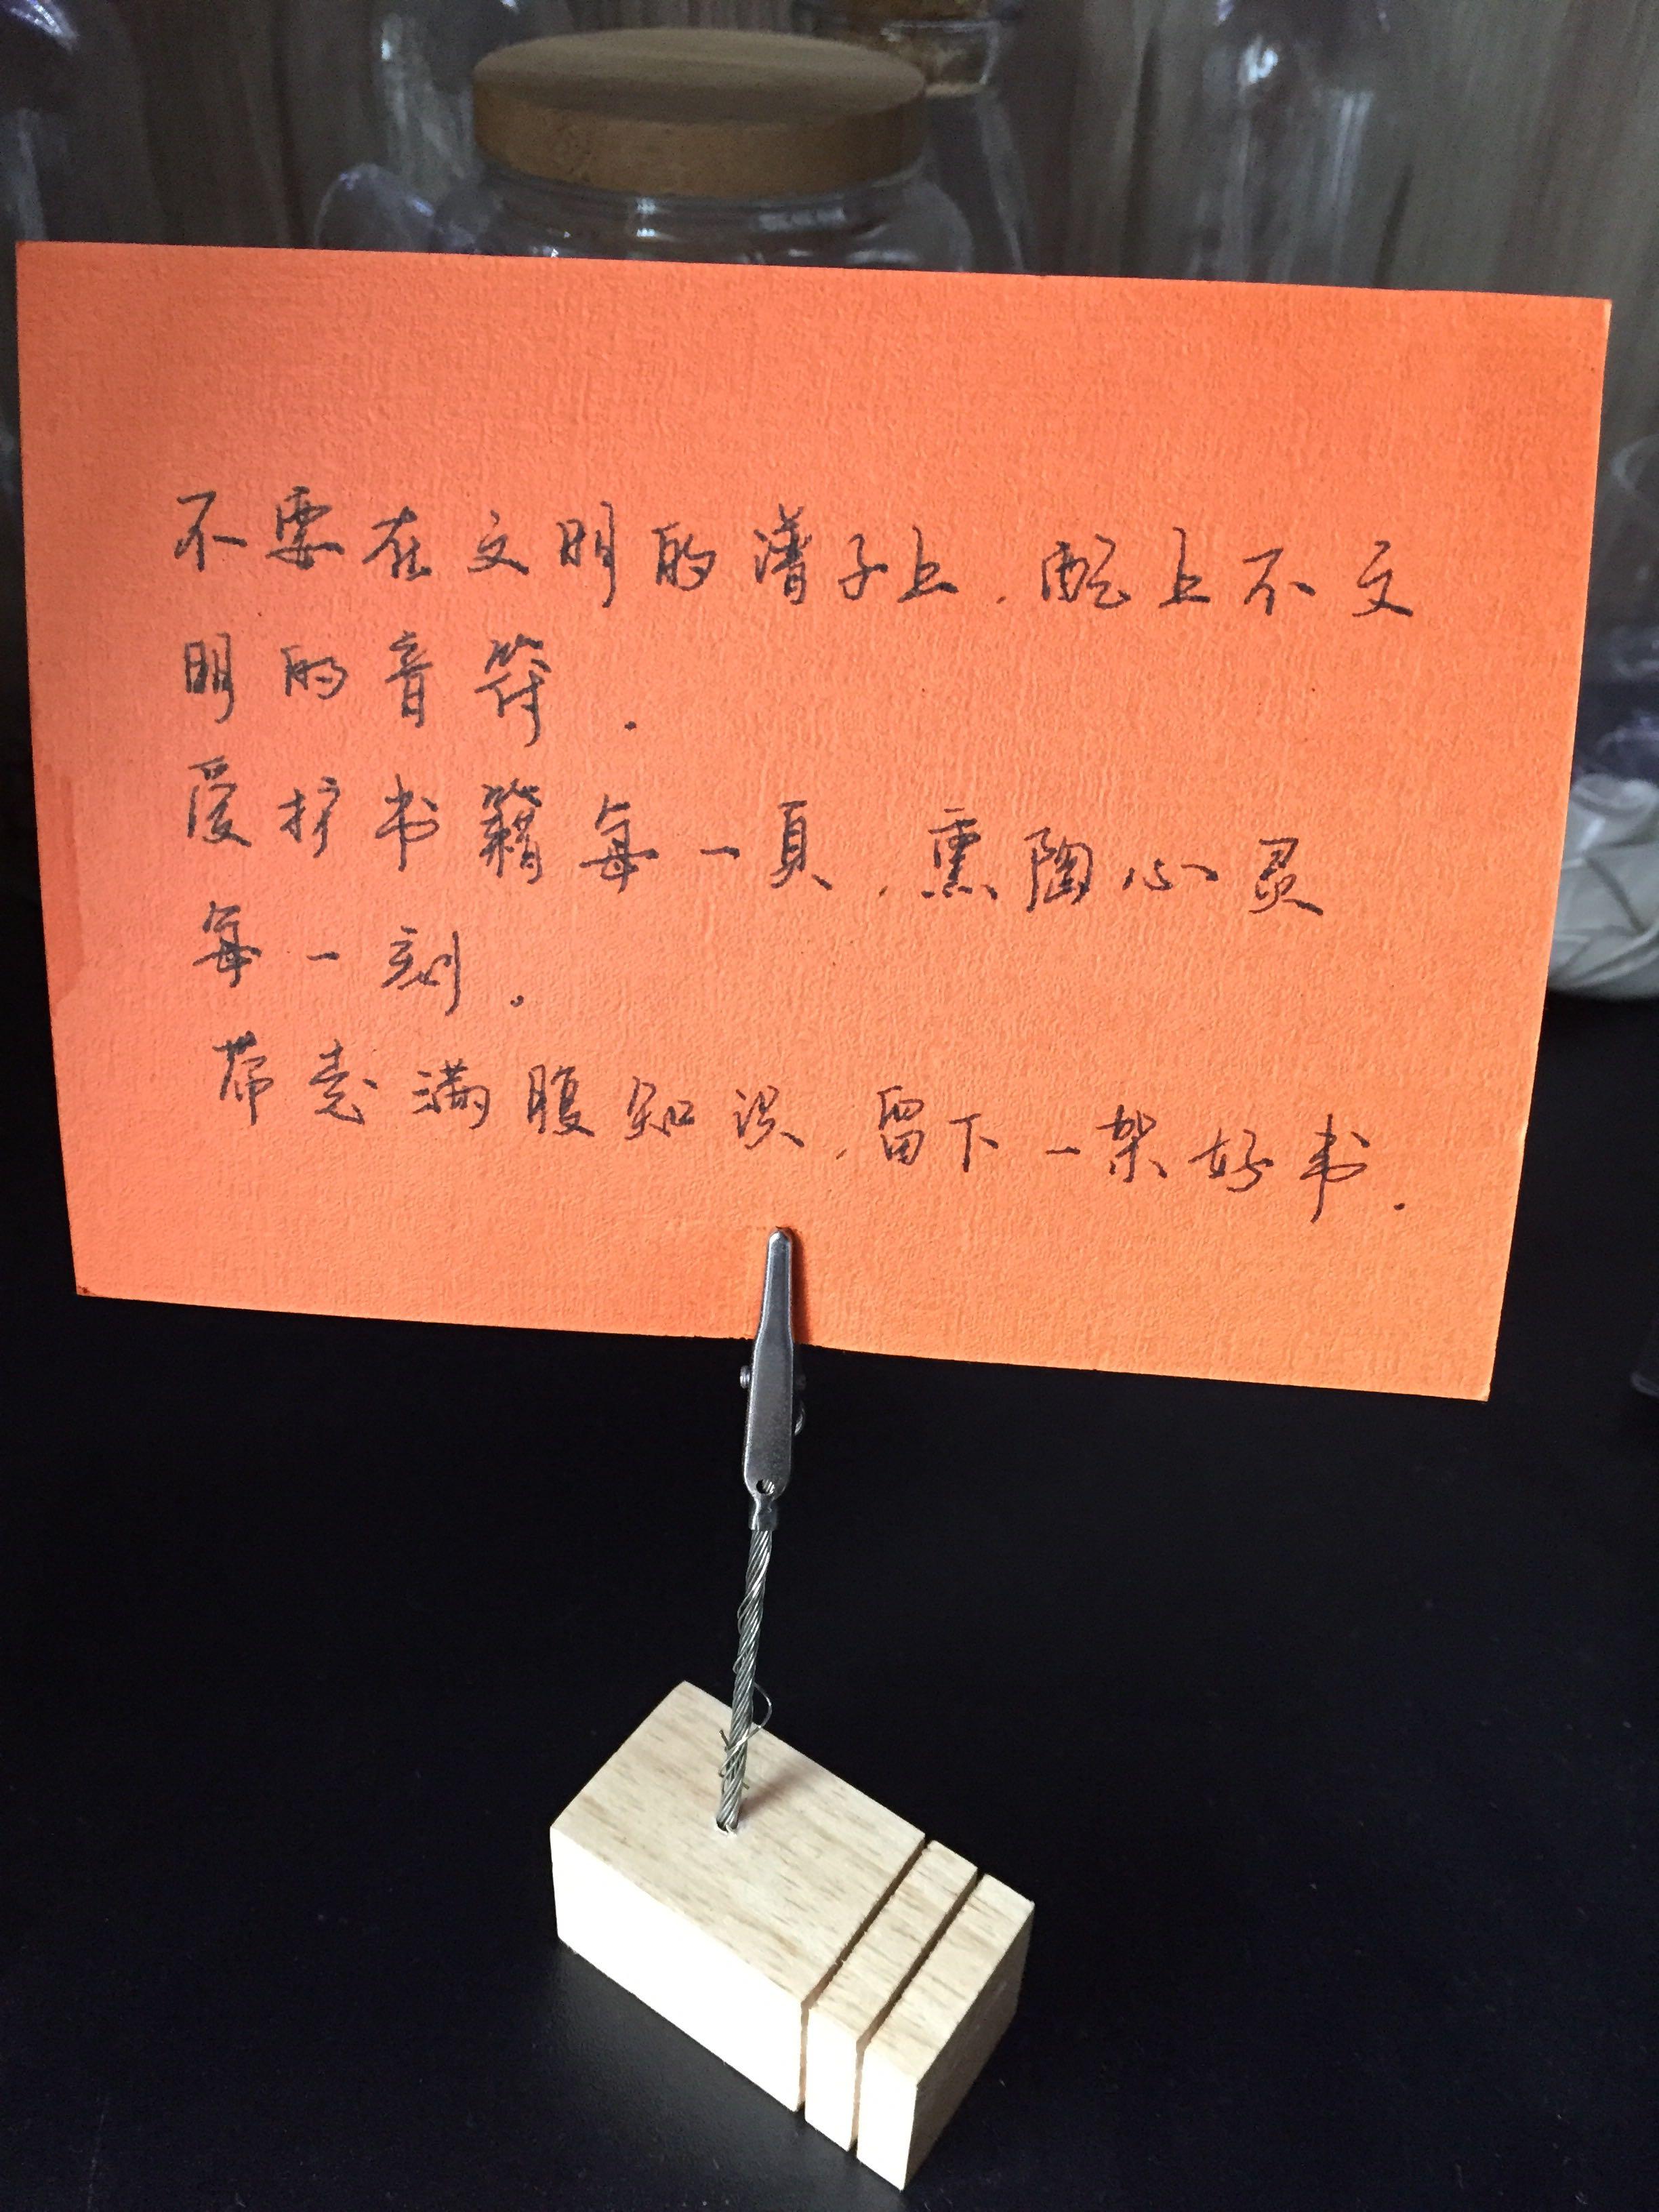 不要在文明的谱子上，配上不文
明的音符．
爱护书籍每一頁，熏陶心灵
每一刻。
带走满腹知识，留下一架好书．